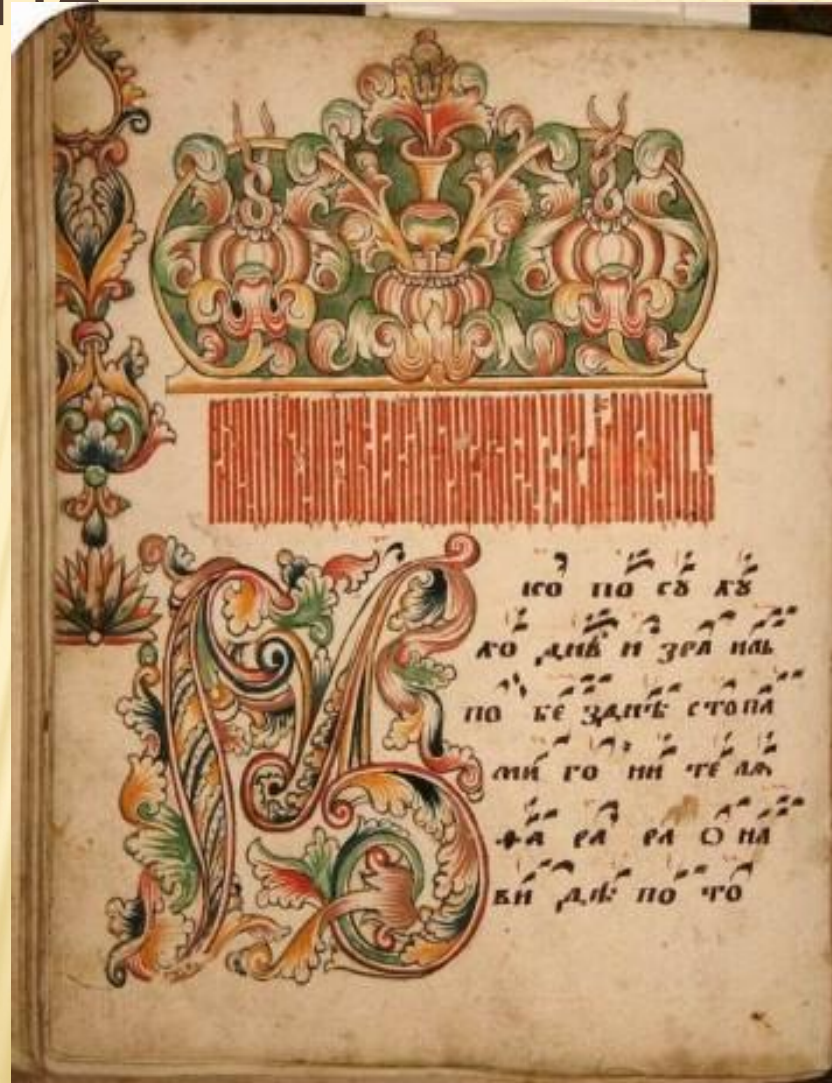 Ꙗ
ко по сꙋ хꙋ
хо дивъ и зра иль
по бе зднѣ стопа
ми го ни те лѧ
фа ра ра о на
ви дѣ по то